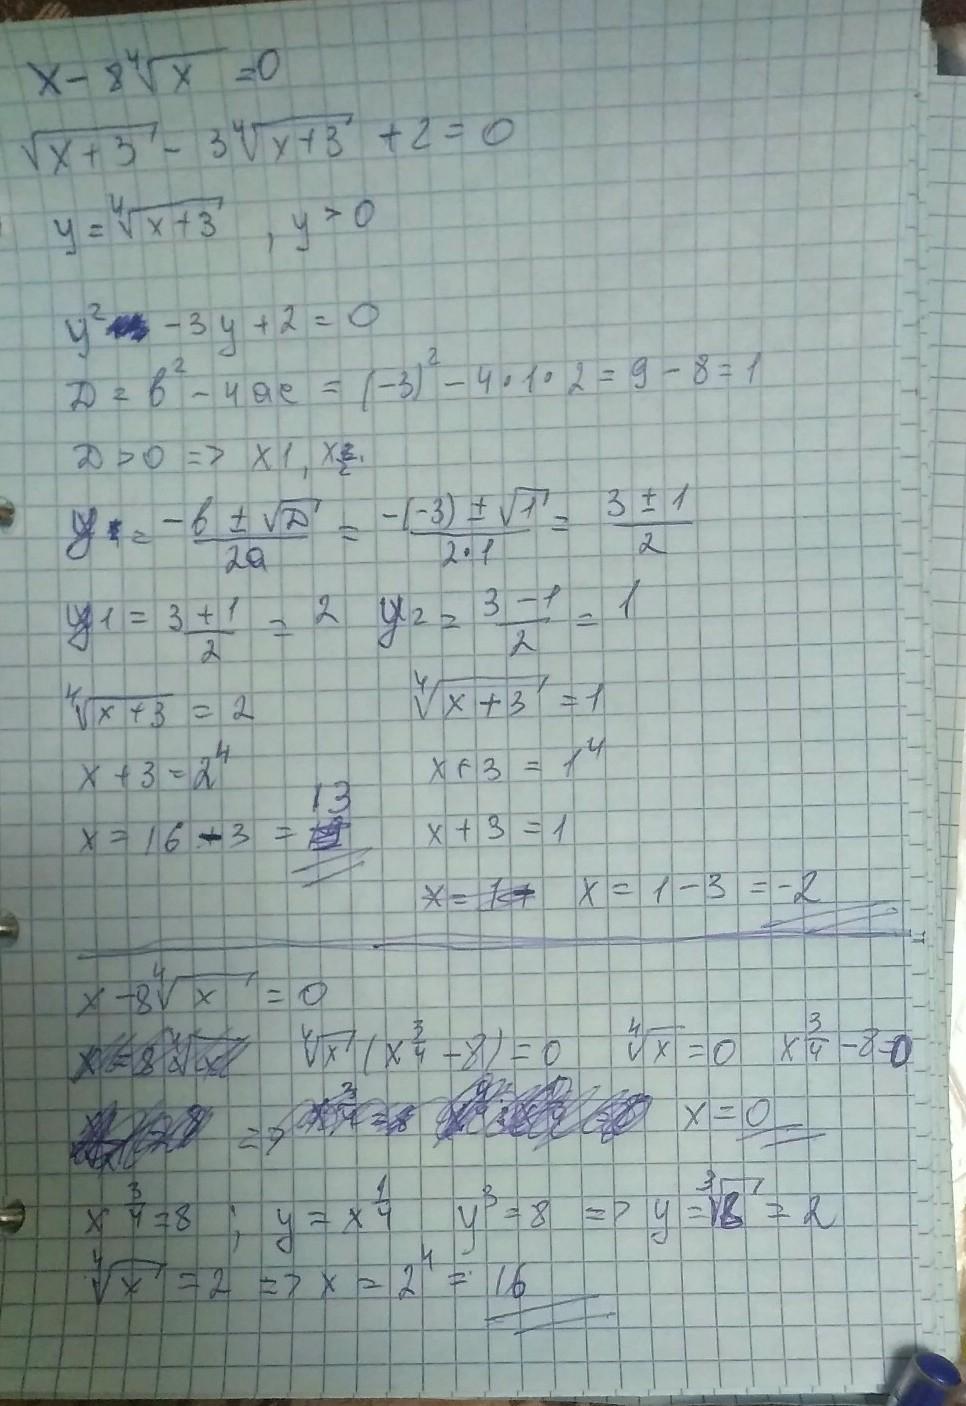 x - 8∜x = 0
√(x+3) - 3∜(x+3) + 2 = 0
y = ∜(x+3) , y > 0
y² - 3y + 2 = 0
D = b² - 4ac = (-3)² - 4·1·2 = 9 - 8 = 1
D > 0 => x1, x2.
y = (-b ± √D)/(2a) = (-(-3) ± √1)/(2·1) = (3 ± 1)/2
y1 = (3+1)/2 = 2 y2 = (3-1)/2 = 1
∜(x+3) = 2 ∜(x+3) = 1
x + 3 = 2⁴ x + 3 = 1⁴
x = 16 - 3 = 13 x + 3 = 1
x = 1 - 3 = -2
x - 8∜x = 0
∜x (x^(3/4) - 8) = 0 ∜x = 0 x^(3/4) - 8 = 0
=> x = 0
x^(3/4) = 8 ; y = x^(1/4) y³ = 8 => y = ∛8 = 2
∜x = 2 => x = 2⁴ = 16